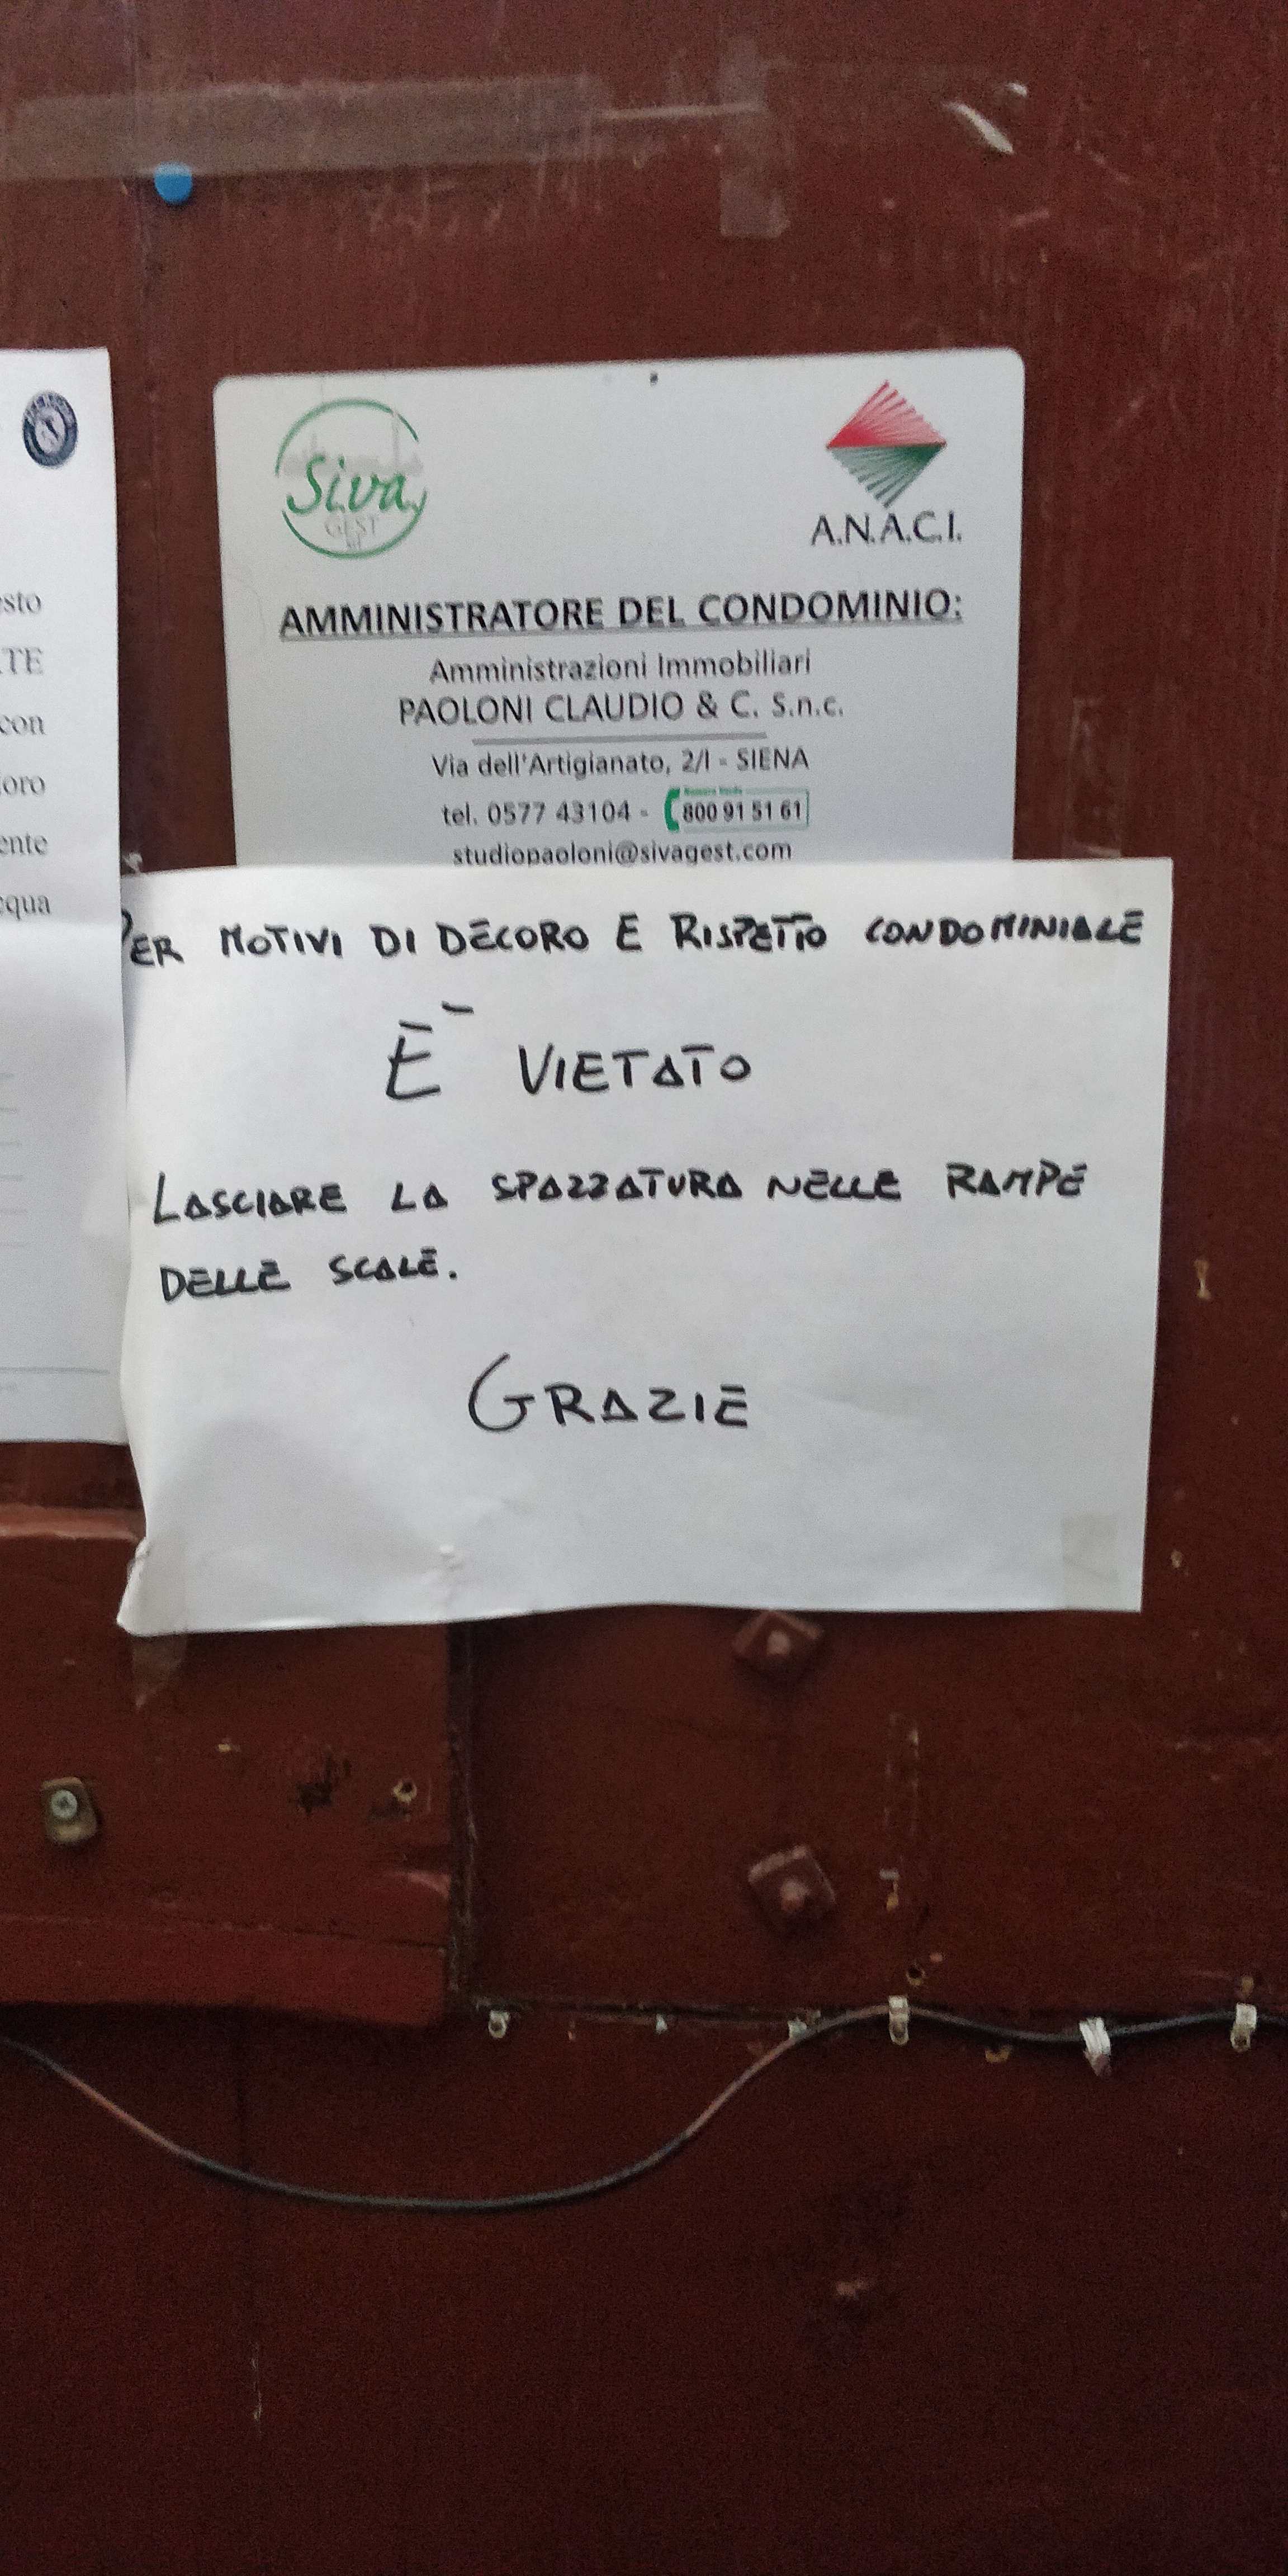 esto
TE
con
loro
ente
cqua
Siva
GEST
srl
A.N.A.C.I.
AMMINISTRATORE DEL CONDOMINIO:
Amministrazioni Immobiliari
PAOLONI CLAUDIO & C. S.n.c.
Via dell'Artigianato, 2/I - SIENA
tel. 0577 43104 - Numero Verde 800 91 51 61
studiopaoloni@sivagest.com
PER MOTIVI DI DECORO E RISPETTO CONDOMINIALE
È VIETATO
LASCIARE LA SPAZZATURA NELLE RAMPE
DELLE SCALE.
GRAZIE